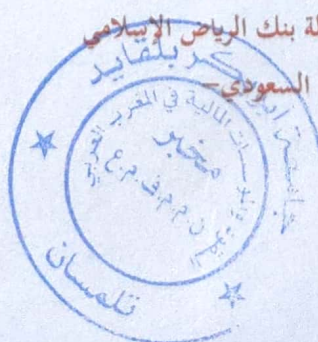 لة بنك الرياض الإسلامي
السعودي–
جامعة أبو بكر بلقايد
النقود والمؤسسات المالية في المغرب العربي
مخبر
ن.م.م.ف.م.ع
تلمسان